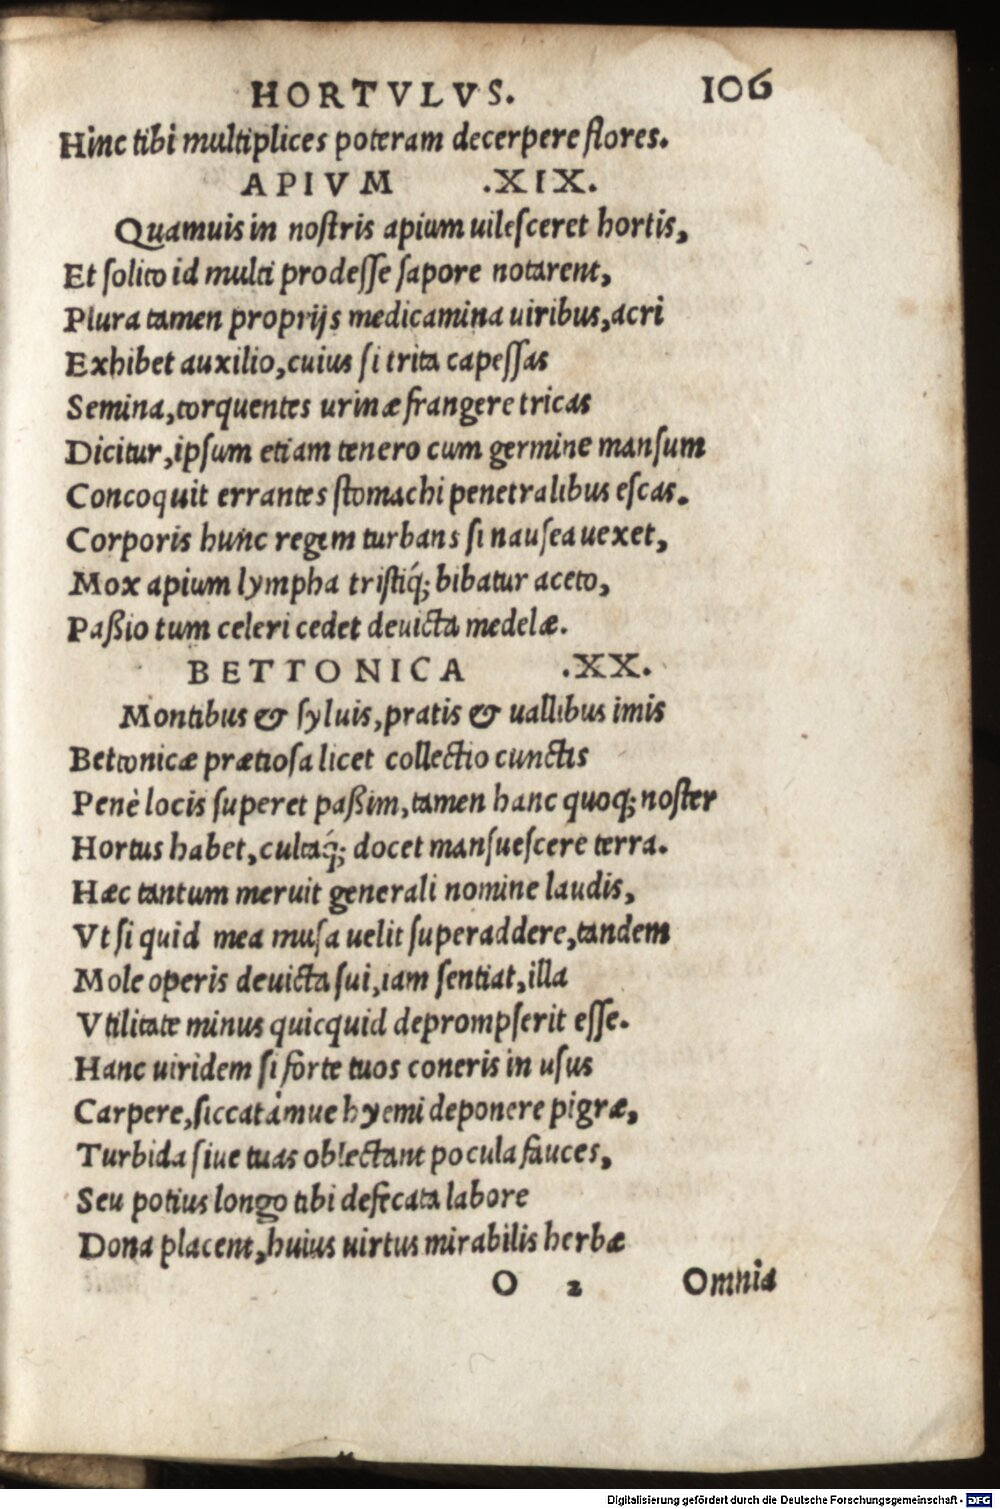 HORTVLVS. 106
Hinc tibi multiplices poteram decerpere flores.
APIVM .XIX.
Quamuis in noſtris apium uileſceret hortis,
Et ſolito id multi prodeſſe ſapore notarent,
Plura tamen proprijs medicamina uiribus, acri
Exhibet auxilio, cuius ſi trita capeſſas
Semina, torquentes urinæ frangere tricas
Dicitur, ipſum etiam tenero cum germine manſum
Concoquit errantes ſtomachi penetralibus eſcas.
Corporis hunc regem turbans ſi nauſea uexet,
Mox apium lympha triſtiq́; bibatur aceto,
Paßio tum celeri cedet deuicta medelæ.
BETTONICA .XX.
Montibus & ſyluis, pratis & uallibus imis
Bettonicæ prætioſa licet collectio cunctis
Penè locis ſuperet paßim, tamen hanc quoq; noſter
Hortus habet, cultaq́; docet manſueſcere terra.
Hæc tantum meruit generali nomine laudis,
Vt ſi quid mea muſa uelit ſuperaddere, tandem
Mole operis deuicta ſui, iam ſentiat, illa
Vtilitate minus quicquid deprompſerit eſſe.
Hanc uiridem ſi forte tuos coneris in uſus
Carpere, ſiccatámue hyemi deponere pigræ,
Turbida ſiue tuas oblectant pocula fauces,
Seu potius longo tibi defecata labore
Dona placent, huius uirtus mirabilis herbæ
O 2 Omnia
Digitalisierung gefördert durch die Deutsche Forschungsgemeinschaft - DFG